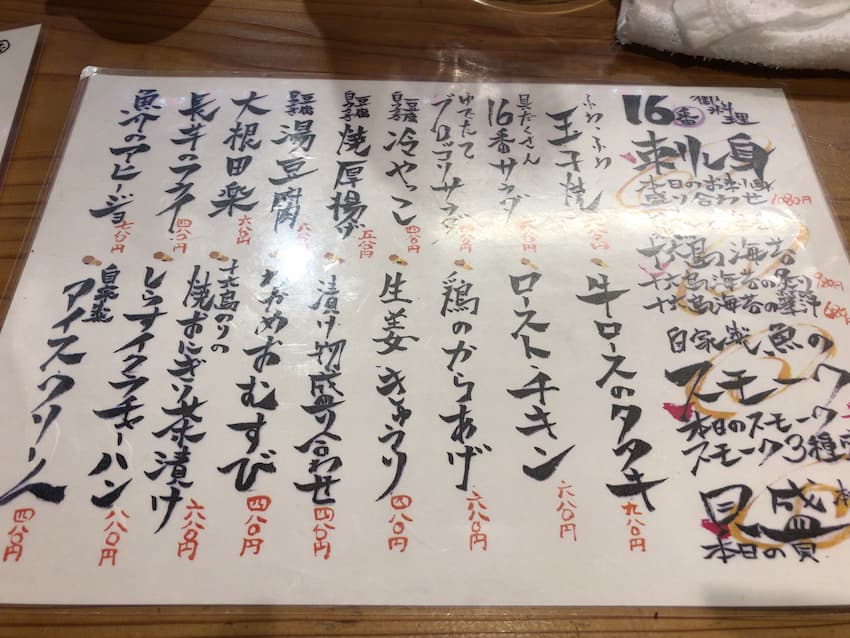 16番 御料理
刺し身
本日のお刺し身
盛り合わせ 1080円
十六島海苔
十六島海苔の炙り 980円
十六島海苔の 680
自家製 魚の
スモーク
本日のスモーク
スモーク3種
貝盛
本日の貝
ふわふわ
玉子焼
具だくさん
16番サラダ
ゆでたて
ブロッコリサラダ
冷やっこ 四八〇円
焼厚揚げ 五八〇円
湯豆腐
大根田楽 六八〇円
長芋のフライ 四八〇円
魚介のアヒージョ 七八〇円
牛ロースのタタキ 九八〇円
ローストチキン 六八〇円
鶏のからあげ 六八〇円
生姜きゅうり 四八〇円
漬け物盛り合わせ 四八〇円
わかめおむすび 四八〇円
十六島のりの
焼おにぎり茶漬け 六八〇円
しらすイクラチャーハン 八八〇円
自家製
アイスクリーム 四八〇円